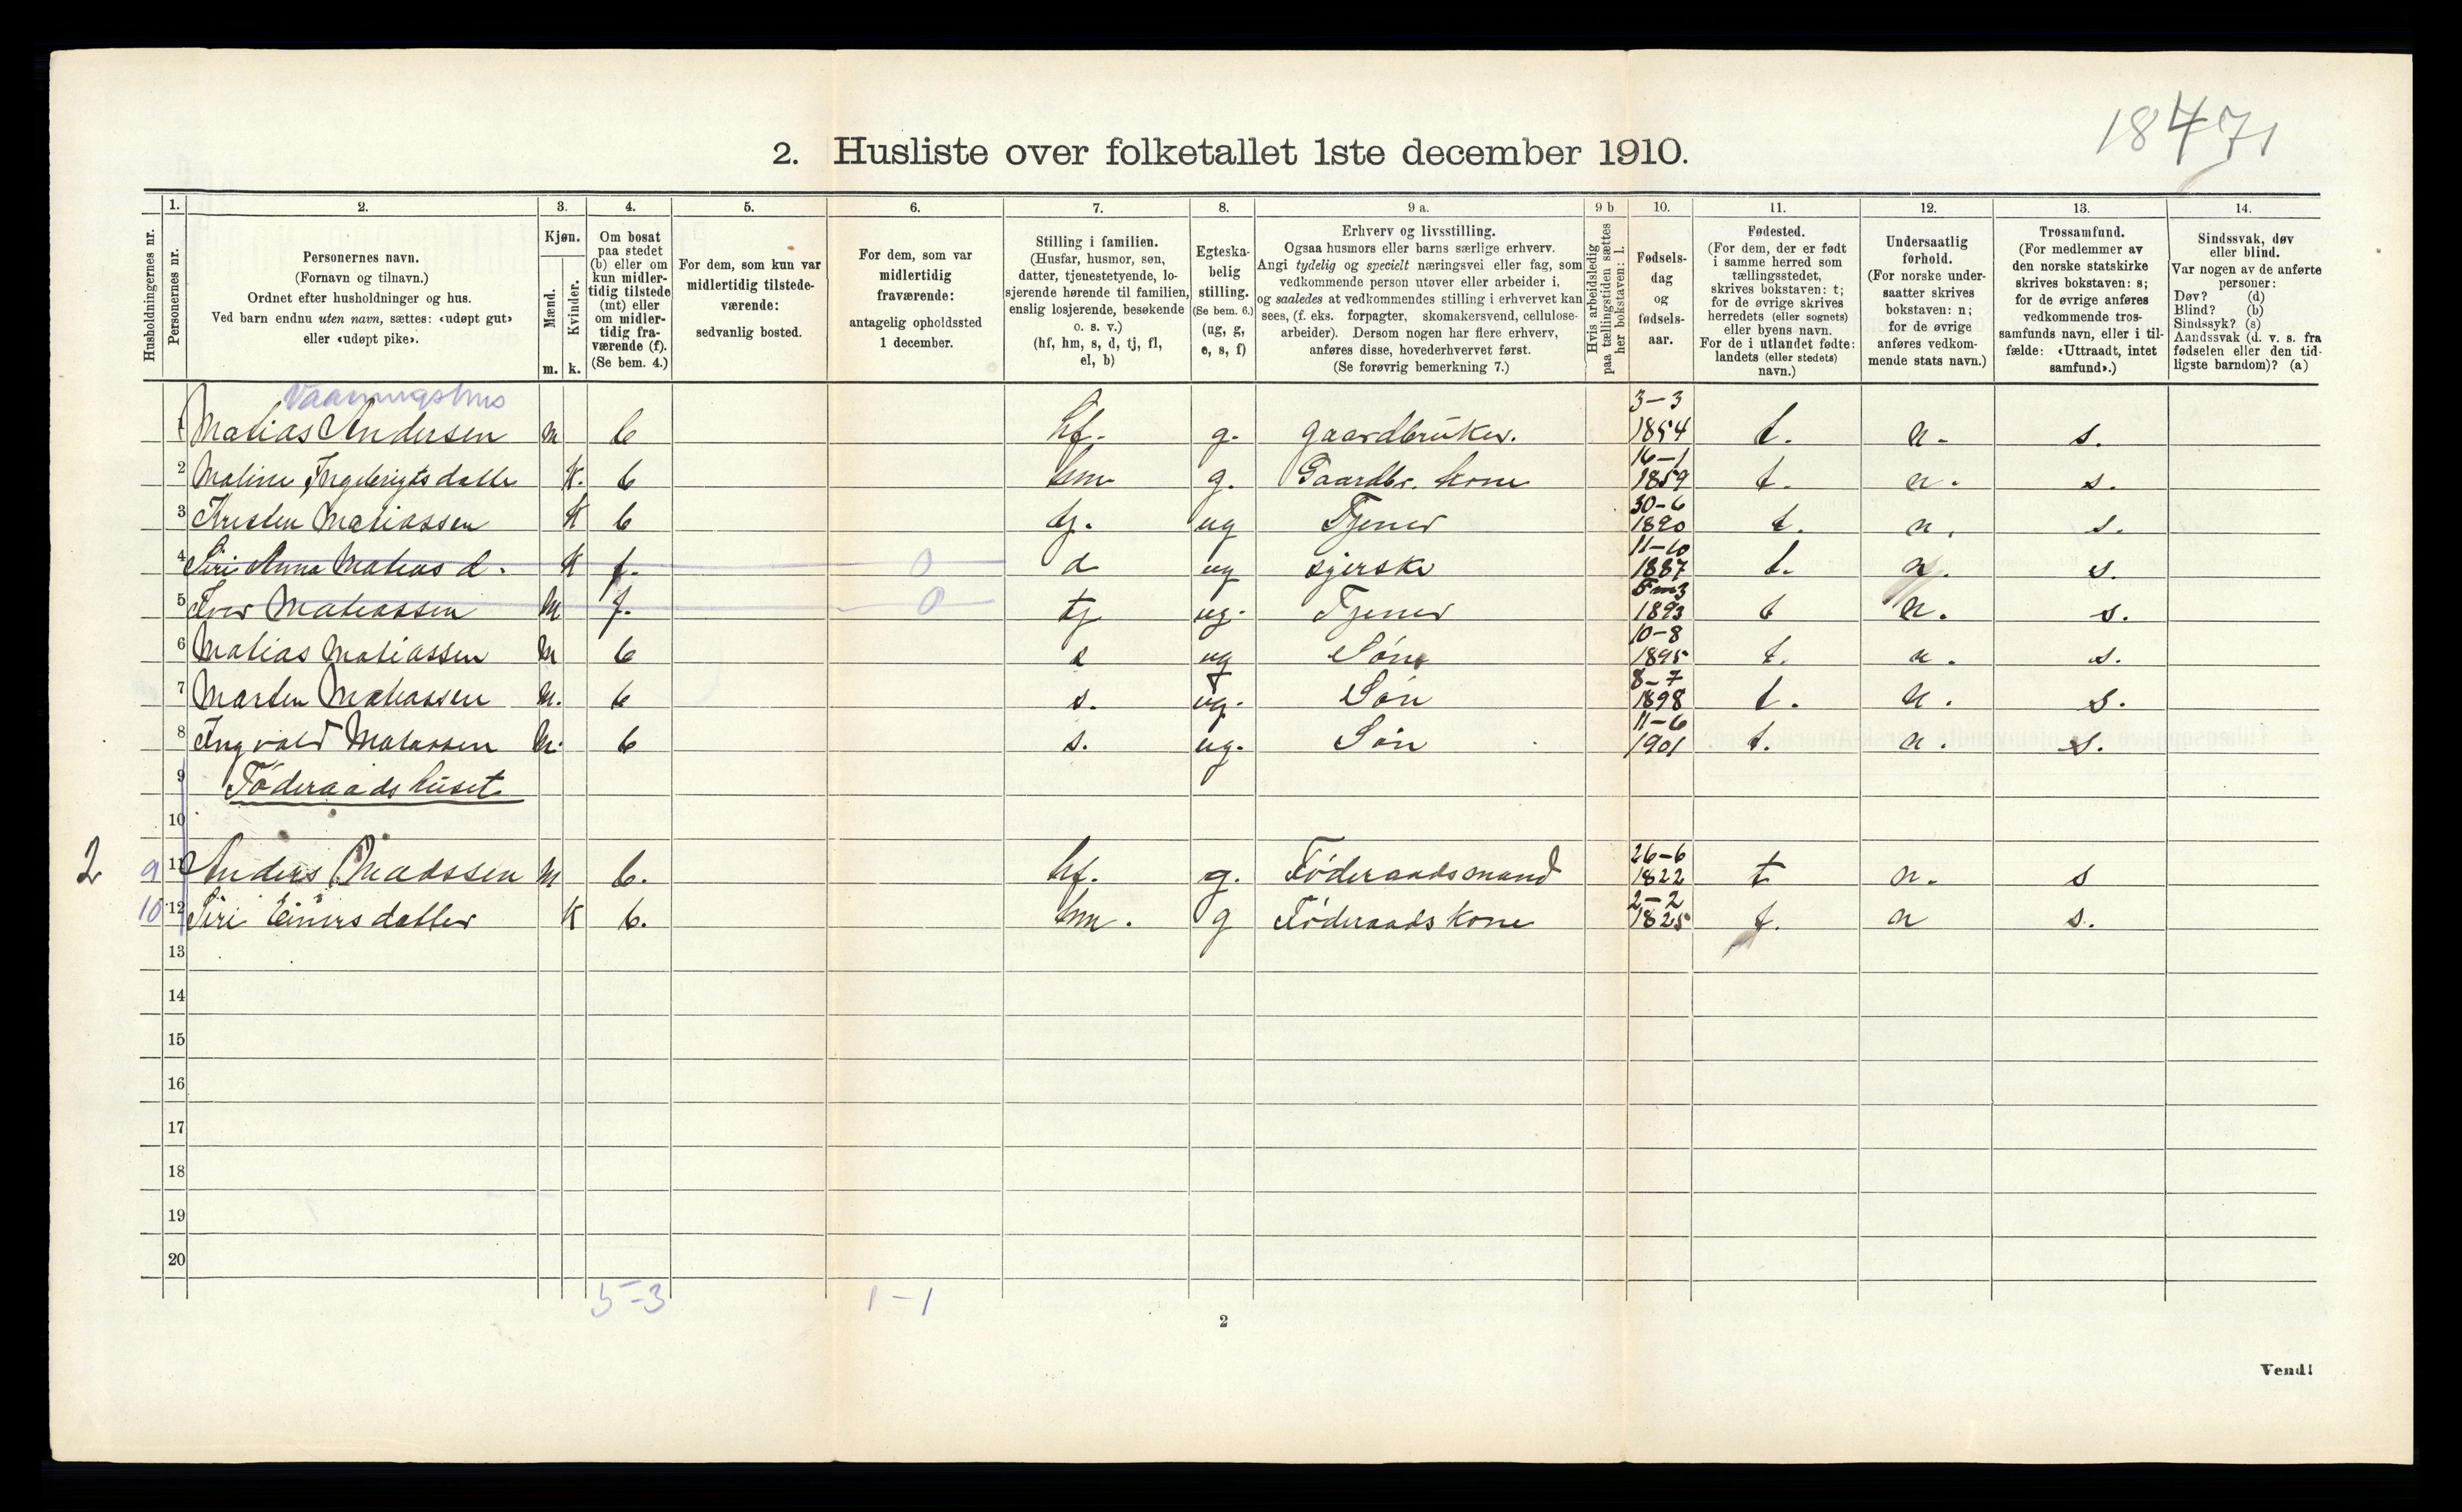 18471
2. Husliste over folketallet 1ste december 1910.
1. 2. 3. 4. 5. 6. 7. 8. 9 a. 9 b 10. 11. 12. 13. 14.
Husholdningernes nr.
Personernes nr.
Personernes navn.
(Fornavn og tilnavn.)
Ordnet efter husholdninger og hus.
Ved barn endnu uten navn, sættes: «udøpt gut»
eller «udøpt pike».
Kjøn.
Mænd.
Kvinder.
m. k.
Om bosat
paa stedet
(b) eller om
kun midler-
tidig tilstede
(mt) eller
om midler-
tidig fra-
værende (f).
(Se bem. 4.)
For dem, som kun var
midlertidig tilstede-
værende:
sedvanlig bosted.
For dem, som var
midlertidig
fraværende:
antagelig opholdssted
1 december.
Stilling i familien.
(Husfar, husmor, søn,
datter, tjenestetyende, lo-
sjerende hørende til familien,
enslig losjerende, besøkende
o. s. v.)
(hf, hm, s, d, tj, fl,
el, b)
Egteska-
belig
stilling.
(Se bem. 6.)
(ug, g,
e, s, f)
Erhverv og livsstilling.
Ogsaa husmors eller barns særlige erhverv.
Angi tydelig og specielt næringsvei eller fag, som
vedkommende person utøver eller arbeider i,
og saaledes at vedkommendes stilling i erhvervet kan
sees, (f. eks. forpagter, skomakersvend, cellulose-
arbeider). Dersom nogen har flere erhverv,
anføres disse, hovederhvervet først.
(Se forøvrig bemerkning 7.)
Hvis arbeidsledig
paa tællingstiden sættes
her bokstaven: l.
Fødsels-
dag
og
fødsels-
aar.
Fødested.
(For dem, der er født
i samme herred som
tællingsstedet,
skrives bokstaven: t;
for de øvrige skrives
herredets (eller sognets)
eller byens navn.
For de i utlandet fødte:
landets (eller stedets)
navn.)
Undersaatlig
forhold.
(For norske under-
saatter skrives
bokstaven: n;
for de øvrige
anføres vedkom-
mende stats navn.)
Trossamfund.
(For medlemmer av
den norske statskirke
skrives bokstaven: s;
for de øvrige anføres
vedkommende tros-
samfunds navn, eller i til-
fælde: «Uttraadt, intet
samfund».)
Sindssvak, døv
eller blind.
Var nogen av de anførte
personer:
Døv? (d)
Blind? (b)
Sindssyk? (s)
Aandssvak (d. v. s. fra
fødselen eller den tid-
ligste barndom)? (a)
Vaaningshus
1 Matias Andersen m b hf. g. gaardbruker. 3-3 1854 t. n. s.
2 Maline Ingebrigtsdatter K. b hm g. Gaardbr. kone 16-1 1859 t. n. s.
3 Kristen Matiassen K b tj. ug Tjener 30-6 1890 t. n. s.
4 Siri Anna Matias d. K f. 0 d ug syerske 11-10 1887 t. n. s.
5 Iver Matiassen M f. 0 tj ug. Tjener 5-3 1893 t n. s.
6 Matias Matiassen M b s ug Søn 10-8 1895 t. n. s.
7 Marten Matiassen M. b s. ug. Søn 8-7 1898 t. n. s.
8 Ingvald Matiassen M. b s. ug. Søn 11-6 1901 t. n. s.
9 Føderaadshuset
10
2 9 11 Anders Madssen M b. hf. g. Føderaadsmand 26-6 1822 t n. s
10 12 Siri Einersdatter K b. hm. g Føderaadskone 2-2 1825 t. n s.
13
14
15
16
17
18
19
20
5-3 1-1
2
Vend!